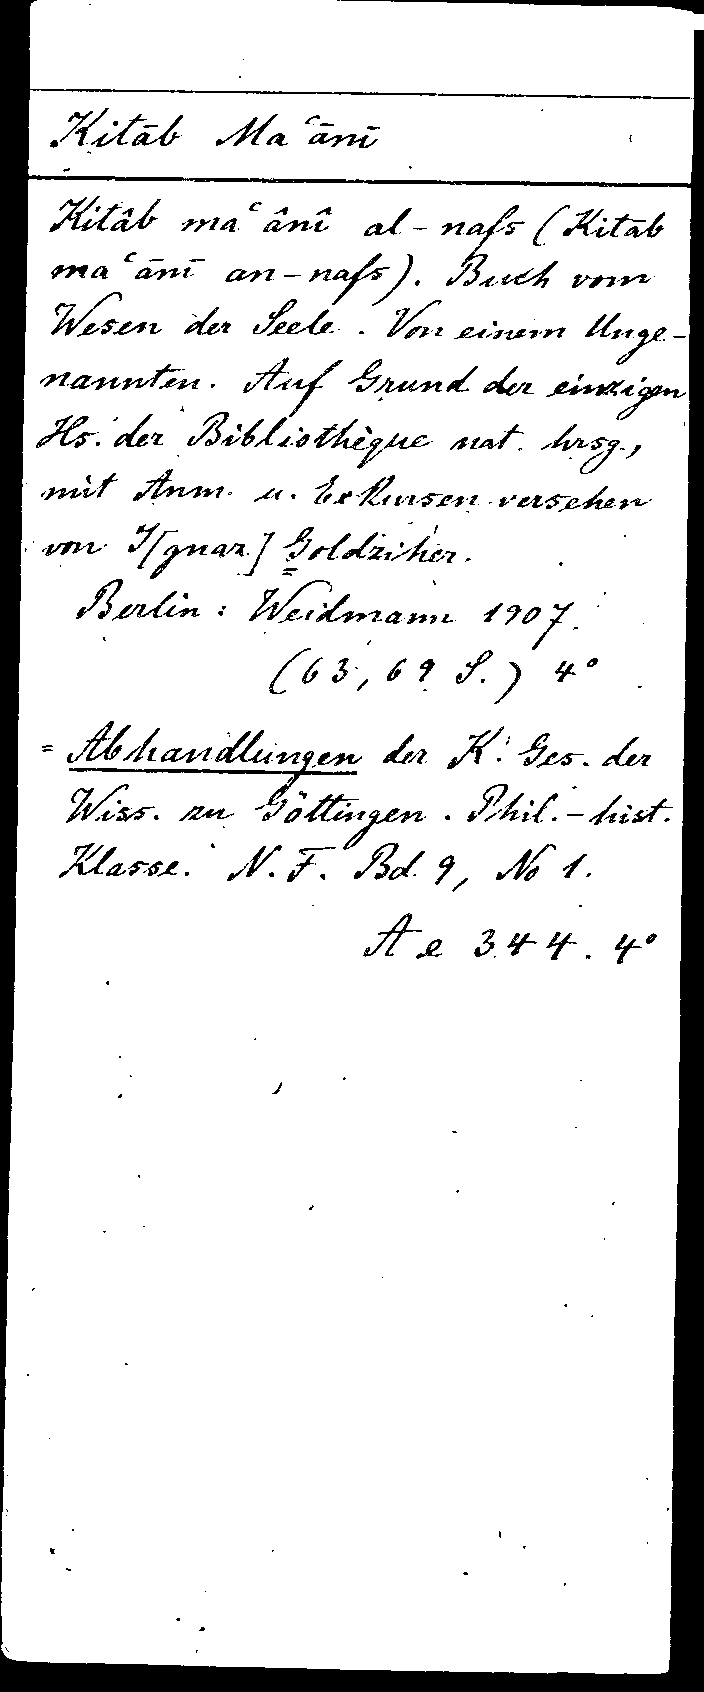 Kitāb Maʿānī
Kitâb maʿânî al-nafs (Kitāb
maʿānī an-nafs). Buch vom
Wesen der Seele. Von einem Unge-
nannten. Auf Grund der einzigen
Hs. der Bibliothèque nat. hrsg.,
mit Anm. u. Exkursen versehen
von I[gnaz] Goldziher.
Berlin: Weidmann 1907.
(63, 69 S.) 4°
= Abhandlungen der K. Ges. der
Wiss. zu Göttingen. Phil.-hist.
Klasse. N. F. Bd. 9, No 1.
Ae 344. 4°